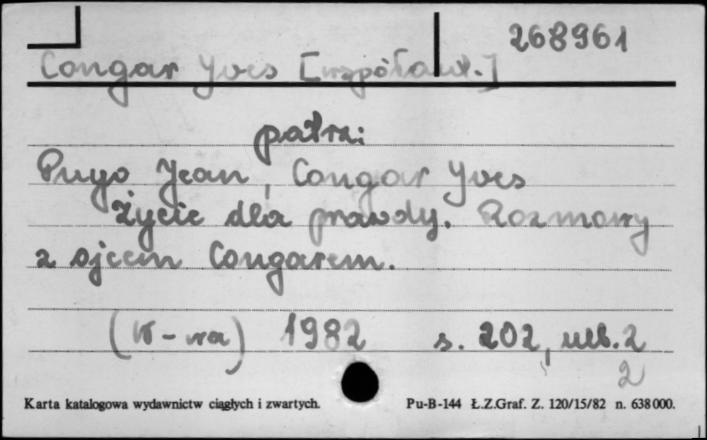 268961
Congar Yves [współaut.]
patrz:
Puyo Jean, Congar Yves
Życie dla prawdy. Rozmowy
z ojcem Congarem.
(W-wa) 1982 s. 202, nlb. 2
2
Karta katalogowa wydawnictw ciągłych i zwartych. Pu-B-144 Ł.Z.Graf. Z. 120/15/82 n. 638 000.